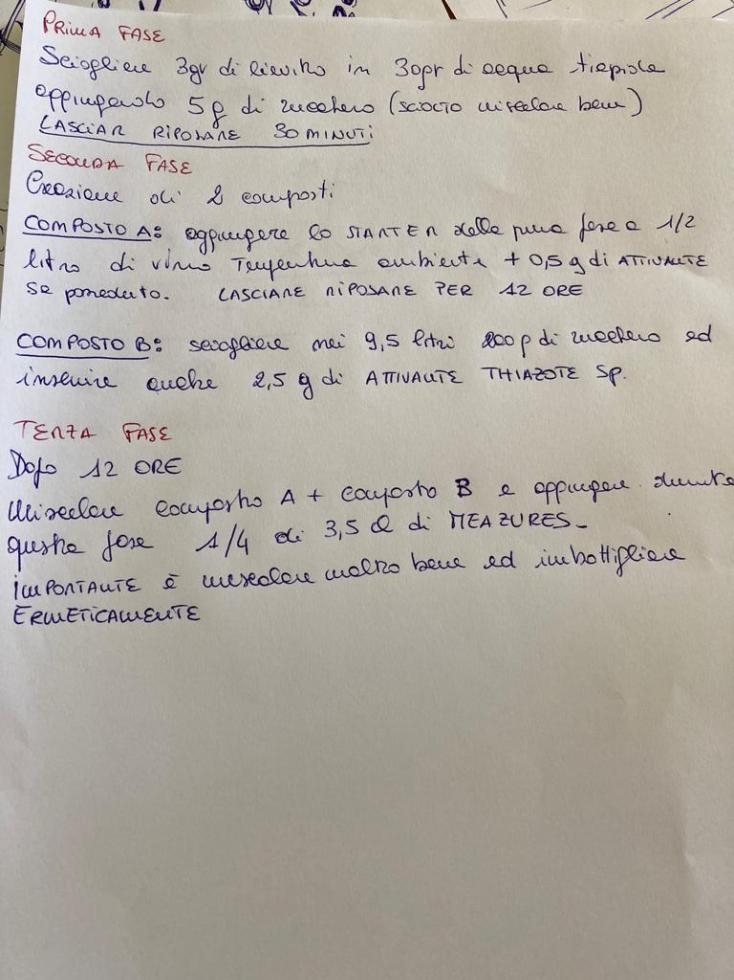 PRIMA FASE
Sciogliere 3gr di lievito in 30gr di acqua tiepida
aggiungendo 5g di zucchero (sciolto miscelare bene)
LASCIAR RIPOSARE 30 MINUTI
SECONDA FASE
Creazione di 2 composti
COMPOSTO A: aggiungere lo STARTER della prima fase a 1/2
litro di vino Temperatura ambiente + 0,5 g di ATTIVANTE
se LASCIARE RIPOSARE PER 12 ORE
COMPOSTO B: sciogliere nei 9,5 litri 200g di zucchero ed
inserire anche 2,5 g di ATTIVANTE THIAZOTE Sp.
TERZA FASE
Dopo 12 ORE
Miscelare composto A + composto B e aggiungere durante
questa fase 1/4 di 3,5 di MEAZURES
IMPORTANTE è miscelare molto bene ed imbottigliare
ERMETICAMENTE